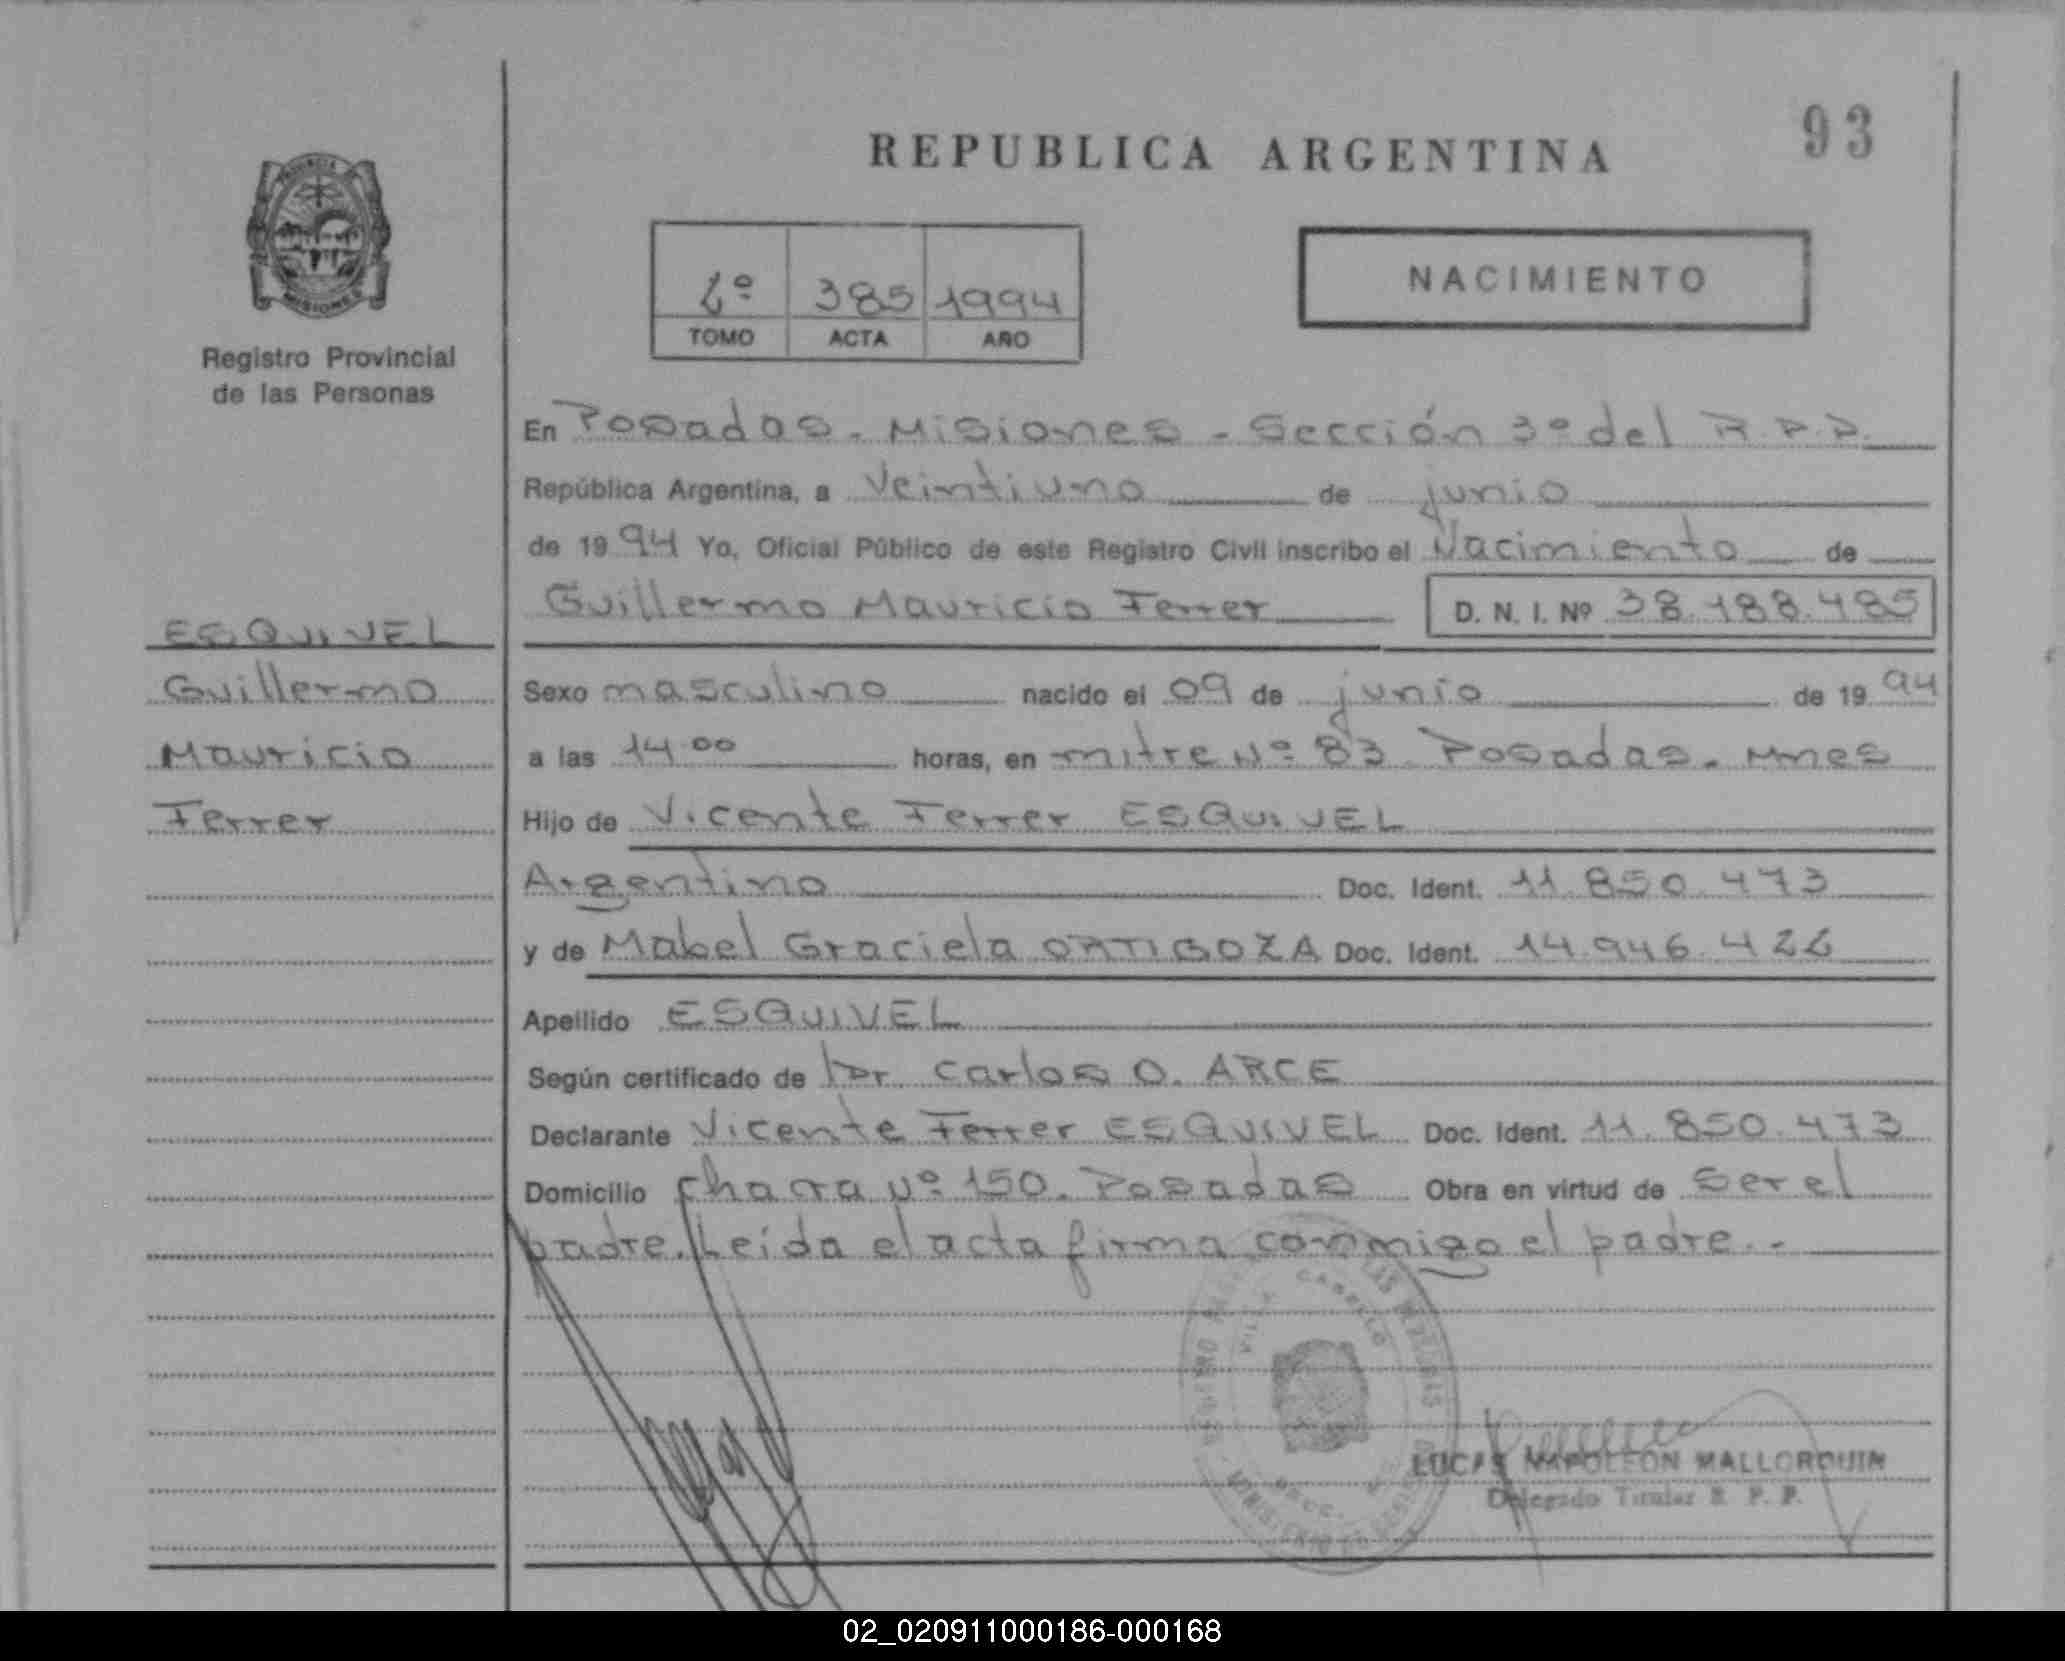 REPUBLICA ARGENTINA
93
PROVINCIA
MISIONES
Registro Provincial
de las Personas
2º 385 1994
TOMO ACTA AÑO
NACIMIENTO
En Posadas - Misiones - Sección 3º del R.P.P.
República Argentina, a Veintiuno de junio
de 1994 Yo, Oficial Público de este Registro Civil inscribo el Nacimiento de
Guillermo Mauricio Ferrer D. N. I. Nº 38.188.485
ESQUIVEL
Guillermo
Mauricio
Ferrer
Sexo masculino nacido el 09 de junio de 1994
a las 14.00 horas, en mitre Nº 83. Posadas. Mnes
Hijo de Vicente Ferrer ESQUIVEL
Argentino Doc. Ident. 11.850.473
y de Mabel Graciela ORTIGOZA Doc. Ident. 14.946.422
Apellido ESQUIVEL
Según certificado de Dr Carlos O. ARCE
Declarante Vicente Ferrer ESQUIVEL Doc. Ident. 11.850.473
Domicilio chacra Nº 150. Posadas Obra en virtud de Ser el
padre. Leída el acta firma conmigo el padre.-
VILLA CABELLO
LUCAS NAPOLEON MALLORQUIN
Delegado Titular R. P. P.
02_020911000186-000168